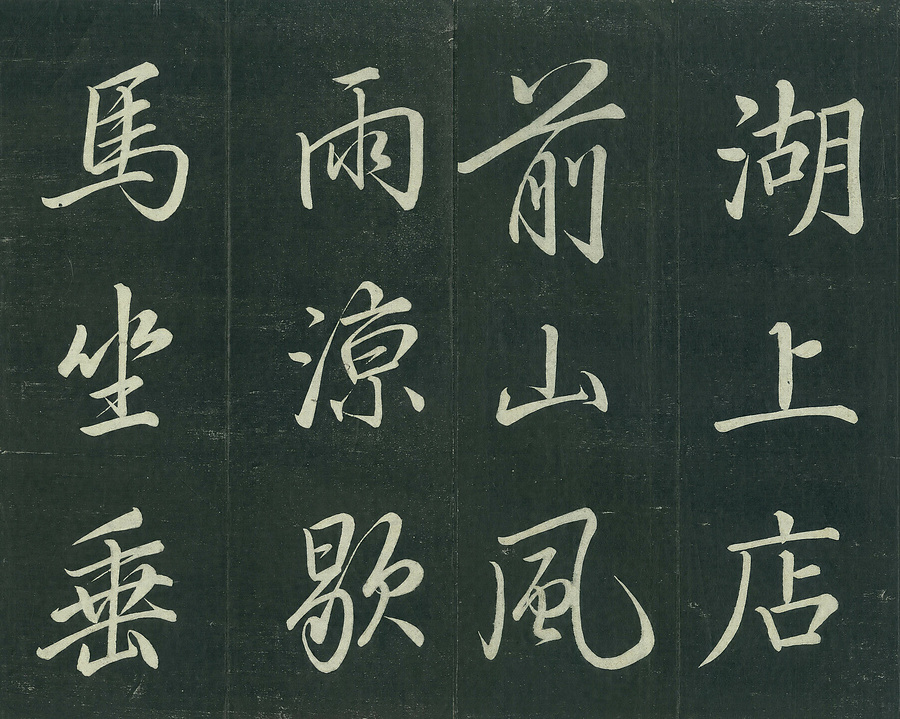 湖上店
前山風
雨涼歇
馬坐垂